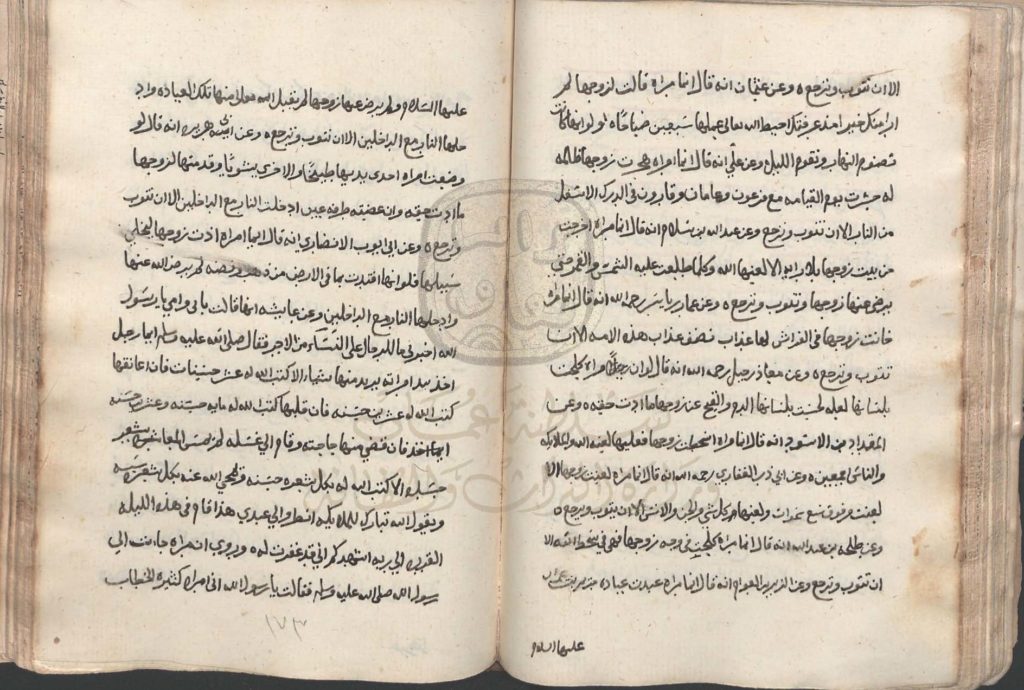 الا ان تتوب وترجع ه وعن عثمان انه قال ايما امراة قالت لزوجها لم
ار منك خير امنذ عرفتك احبط الله تعالى عملها سبعين صباحا ه ولو انها كانت
تصوم النهار وتقوم الليل ه وعن علي انه قال ايما امراة هجرت زوجها ظالمه
له حشرت يوم القيامه مع فرعون وهامان وقارون في الدرك الاسفل
من النار الا ان تتوب وترجع وعن عبد الله بن سلام انه قال ايما امراة اخرجت
من بيت زوجها بلا رايه الا لعنها الله وكلما طلعت عليه الشمس والقمر حتى
يرضى عنها زوجها وتتوب وترجع ه وعن عمار بن ياسر رحمه الله انه قال ايما امراة
خانت زوجها في الفراش لها عذاب نصف عذاب هذه الامه الا ان
تتوب وترجع ه وعن معاذ بن جبل رحمه الله انه قال لو ان امراة
بلسانها الدم والقيح عن زوجها ما ادت حقه ه وعن
المقداد بن الاسود انه قال ايما امراة زوجها فعليها لعنة الله والملايكه
والناس اجمعين ه وعن ابي ذر الغفاري رحمه الله انه قال ايما امراة لعنت زوجها الا
لعنت من فوق سبع سموات ولعنها كل شي والجن والانس الا ان تتوب وترجع ه
وعن طلحه بن عبد الله انه قال ايما امراة كلحت في وجه زوجها فهي في سخط الله الا
ان تتوب وترجع وعن الزبير بن العوام انه قال ايما امراة عبدت عبادة مريم بنت عمران
عليها السلام
عليها السلام ولم يرض عنها زوجها لم يقبل الله منها تلك العباده واد
خلها النار مع الداخلين الا ان تتوب وترجع ه وعن ابي هريره انه قال لو
وضعت امراه احدى يديها طبيخا والاخرى مشويا وقدمتها لزوجها
ما ادت حقه وان عصته طرفه عين ادخلت النار مع الداخلين الا ان تتوب
وترجع ه وعن ابي ايوب الانصاري انه قال ايما امراة اذت زوجها ليخلي
سبيلها فلو انها افتدت بما في الارض من ذهب وفضه لم يرض الله عنها
وادخلها النار مع الداخلين وعن عايشه انها قالت بابي وامي يا رسول
الله اخبرني ما للرجال على النساء من الاجر فقال صلى الله عليه وسلم ايما رجل
اخذ بيد امراته يريد منها شيا الا كتب الله له عشر حسنات فان عانقها
كتب الله له عشرين حسنه فان قبلها كتب الله له مايه حسنه وعشرين حسنه
فان قضى منها حاجته وقام الى غسله لم يمس الما شعر
جسده الا كتب الله له بكل شعره حسنه ومحي الله عنه بكل شعره سيه
ويقول الله تبارك للملايكه انظروا الى عبدي هذا قام في هذه الليله
اشهدكم اني قد غفرت له ه وروي ان امراه جات الى
رسول الله صلى الله عليه وسلم فقالت يا رسول الله اني امراه كثيرة الخطاب
١٧٣
سلطنة عمان
وزارة التراث والثقافة